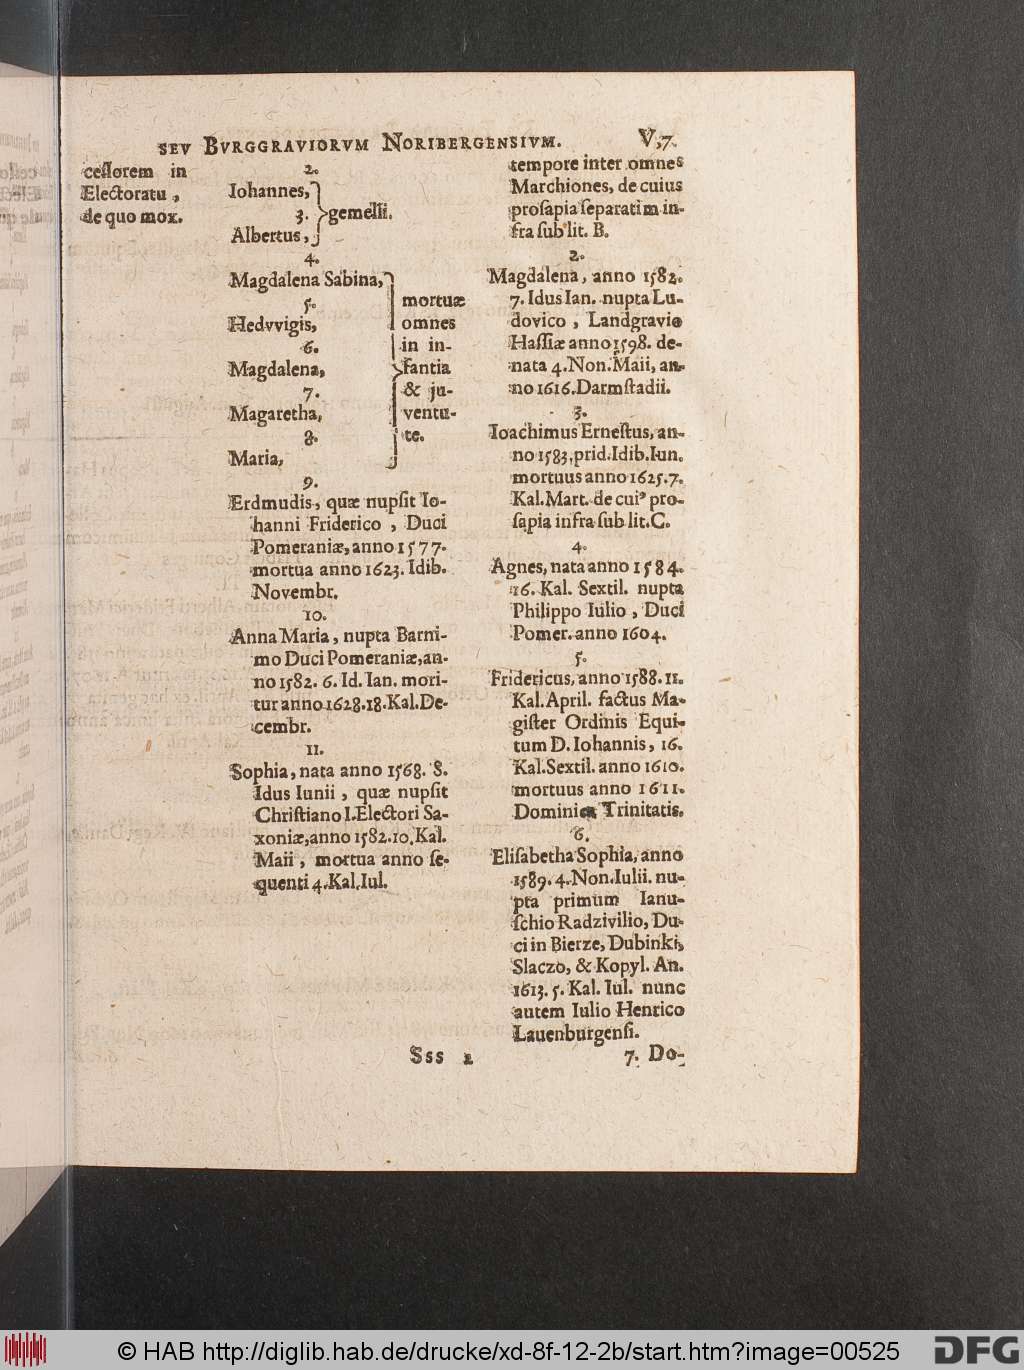 SEV BVRGGRAVIORVM NORIBERGENSIVM. V,7.
ceſſorem in
Electoratu,
de quo mox.
2.
Iohannes,
3. gemelli.
Albertus,
4.
Magdalena Sabina,
5.
Hedvvigis,
6.
Magdalena,
7.
Magaretha,
8.
Maria,
mortuæ
omnes
in in-
fantia
& ju-
ventu-
te.
9.
Erdmudis, quæ nupſit Io-
hanni Friderico, Duci
Pomeraniæ, anno 1577.
mortua anno 1623. Idib.
Novembr.
10.
Anna Maria, nupta Barni-
mo Duci Pomeraniæ, an-
no 1582. 6. Id. Ian. mori-
tur anno 1628. 18. Kal. De-
cembr.
11.
Sophia, nata anno 1568. 8.
Idus Iunii, quæ nupſit
Chriſtiano I. Electori Sa-
xoniæ, anno 1582. 10. Kal.
Maii, mortua anno ſe-
quenti 4. Kal. Iul.
tempore inter omnes
Marchiones, de cuius
proſapia ſeparatim in-
fra ſub lit. B.
2.
Magdalena, anno 1582.
7. Idus Ian. nupta Lu-
dovico, Landgravio
Haſſiæ anno 1598. de-
nata 4. Non. Maii, an-
no 1616. Darmſtadii.
3.
Ioachimus Erneſtus, an-
no 1583. prid. Idib. Iun.
mortuus anno 1625. 7.
Kal. Mart. de cuiꝰ pro-
ſapia infra ſub lit. C.
4.
Agnes, nata anno 1584.
16. Kal. Sextil. nupta
Philippo Iulio, Duci
Pomer. anno 1604.
5.
Fridericus, anno 1588. 11.
Kal. April. factus Ma-
giſter Ordinis Equi-
tum D. Iohannis, 16.
Kal. Sextil. anno 1610.
mortuus anno 1611.
Dominica Trinitatis.
6.
Eliſabetha Sophia, anno
1589. 4. Non. Iulii. nu-
pta primum Ianu-
ſchio Radzivilio, Du-
ci in Bierze, Dubinki,
Slaczo, & Kopyl. An.
1613. 5. Kal. Iul. nunc
autem Iulio Henrico
Lauenburgenſi.
Sss 2 7. Do-
© HAB http://diglib.hab.de/drucke/xd-8f-12-2b/start.htm?image=00525
DFG